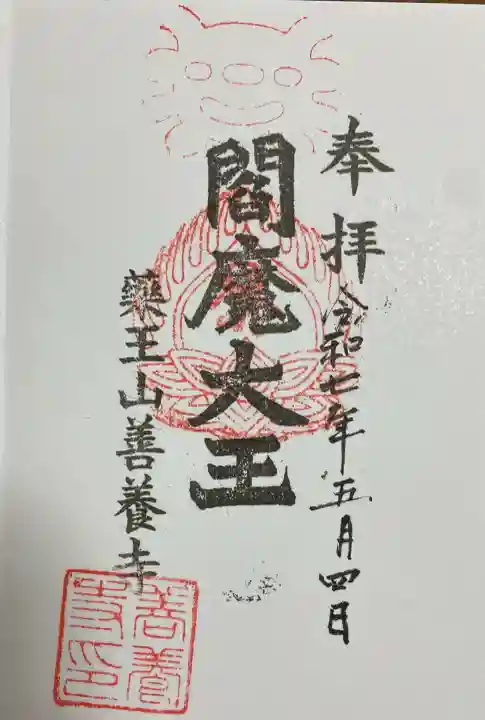 奉拝
令和七年五月四日
閻魔大王
薬王山善養寺
善養寺印